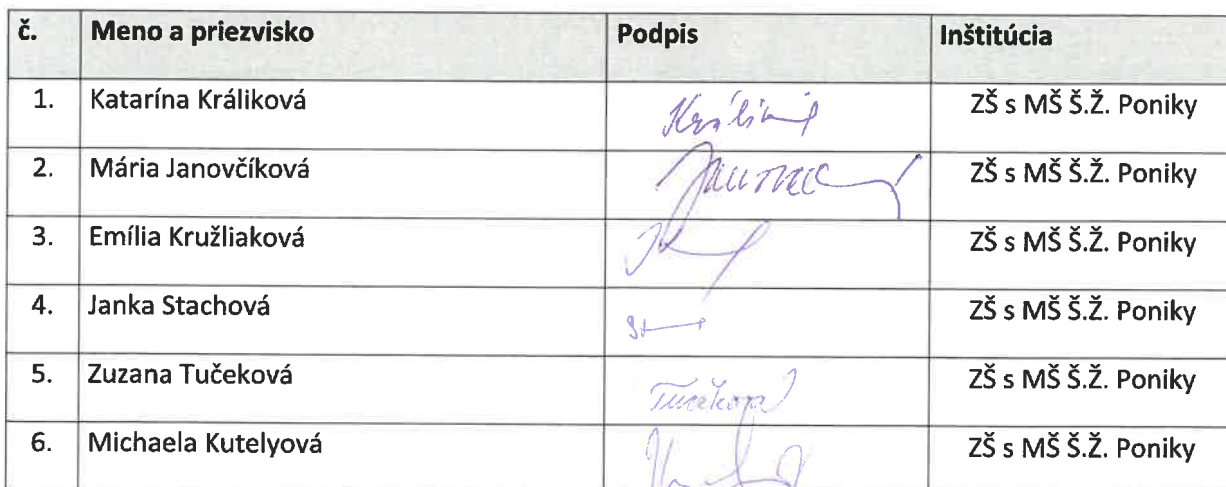 č. Meno a priezvisko Podpis Inštitúcia
1. Katarína Králiková ZŠ s MŠ Š.Ž. Poniky
2. Mária Janovčíková ZŠ s MŠ Š.Ž. Poniky
3. Emília Kružliaková ZŠ s MŠ Š.Ž. Poniky
4. Janka Stachová ZŠ s MŠ Š.Ž. Poniky
5. Zuzana Tučeková Tučeková ZŠ s MŠ Š.Ž. Poniky
6. Michaela Kutelyová ZŠ s MŠ Š.Ž. Poniky